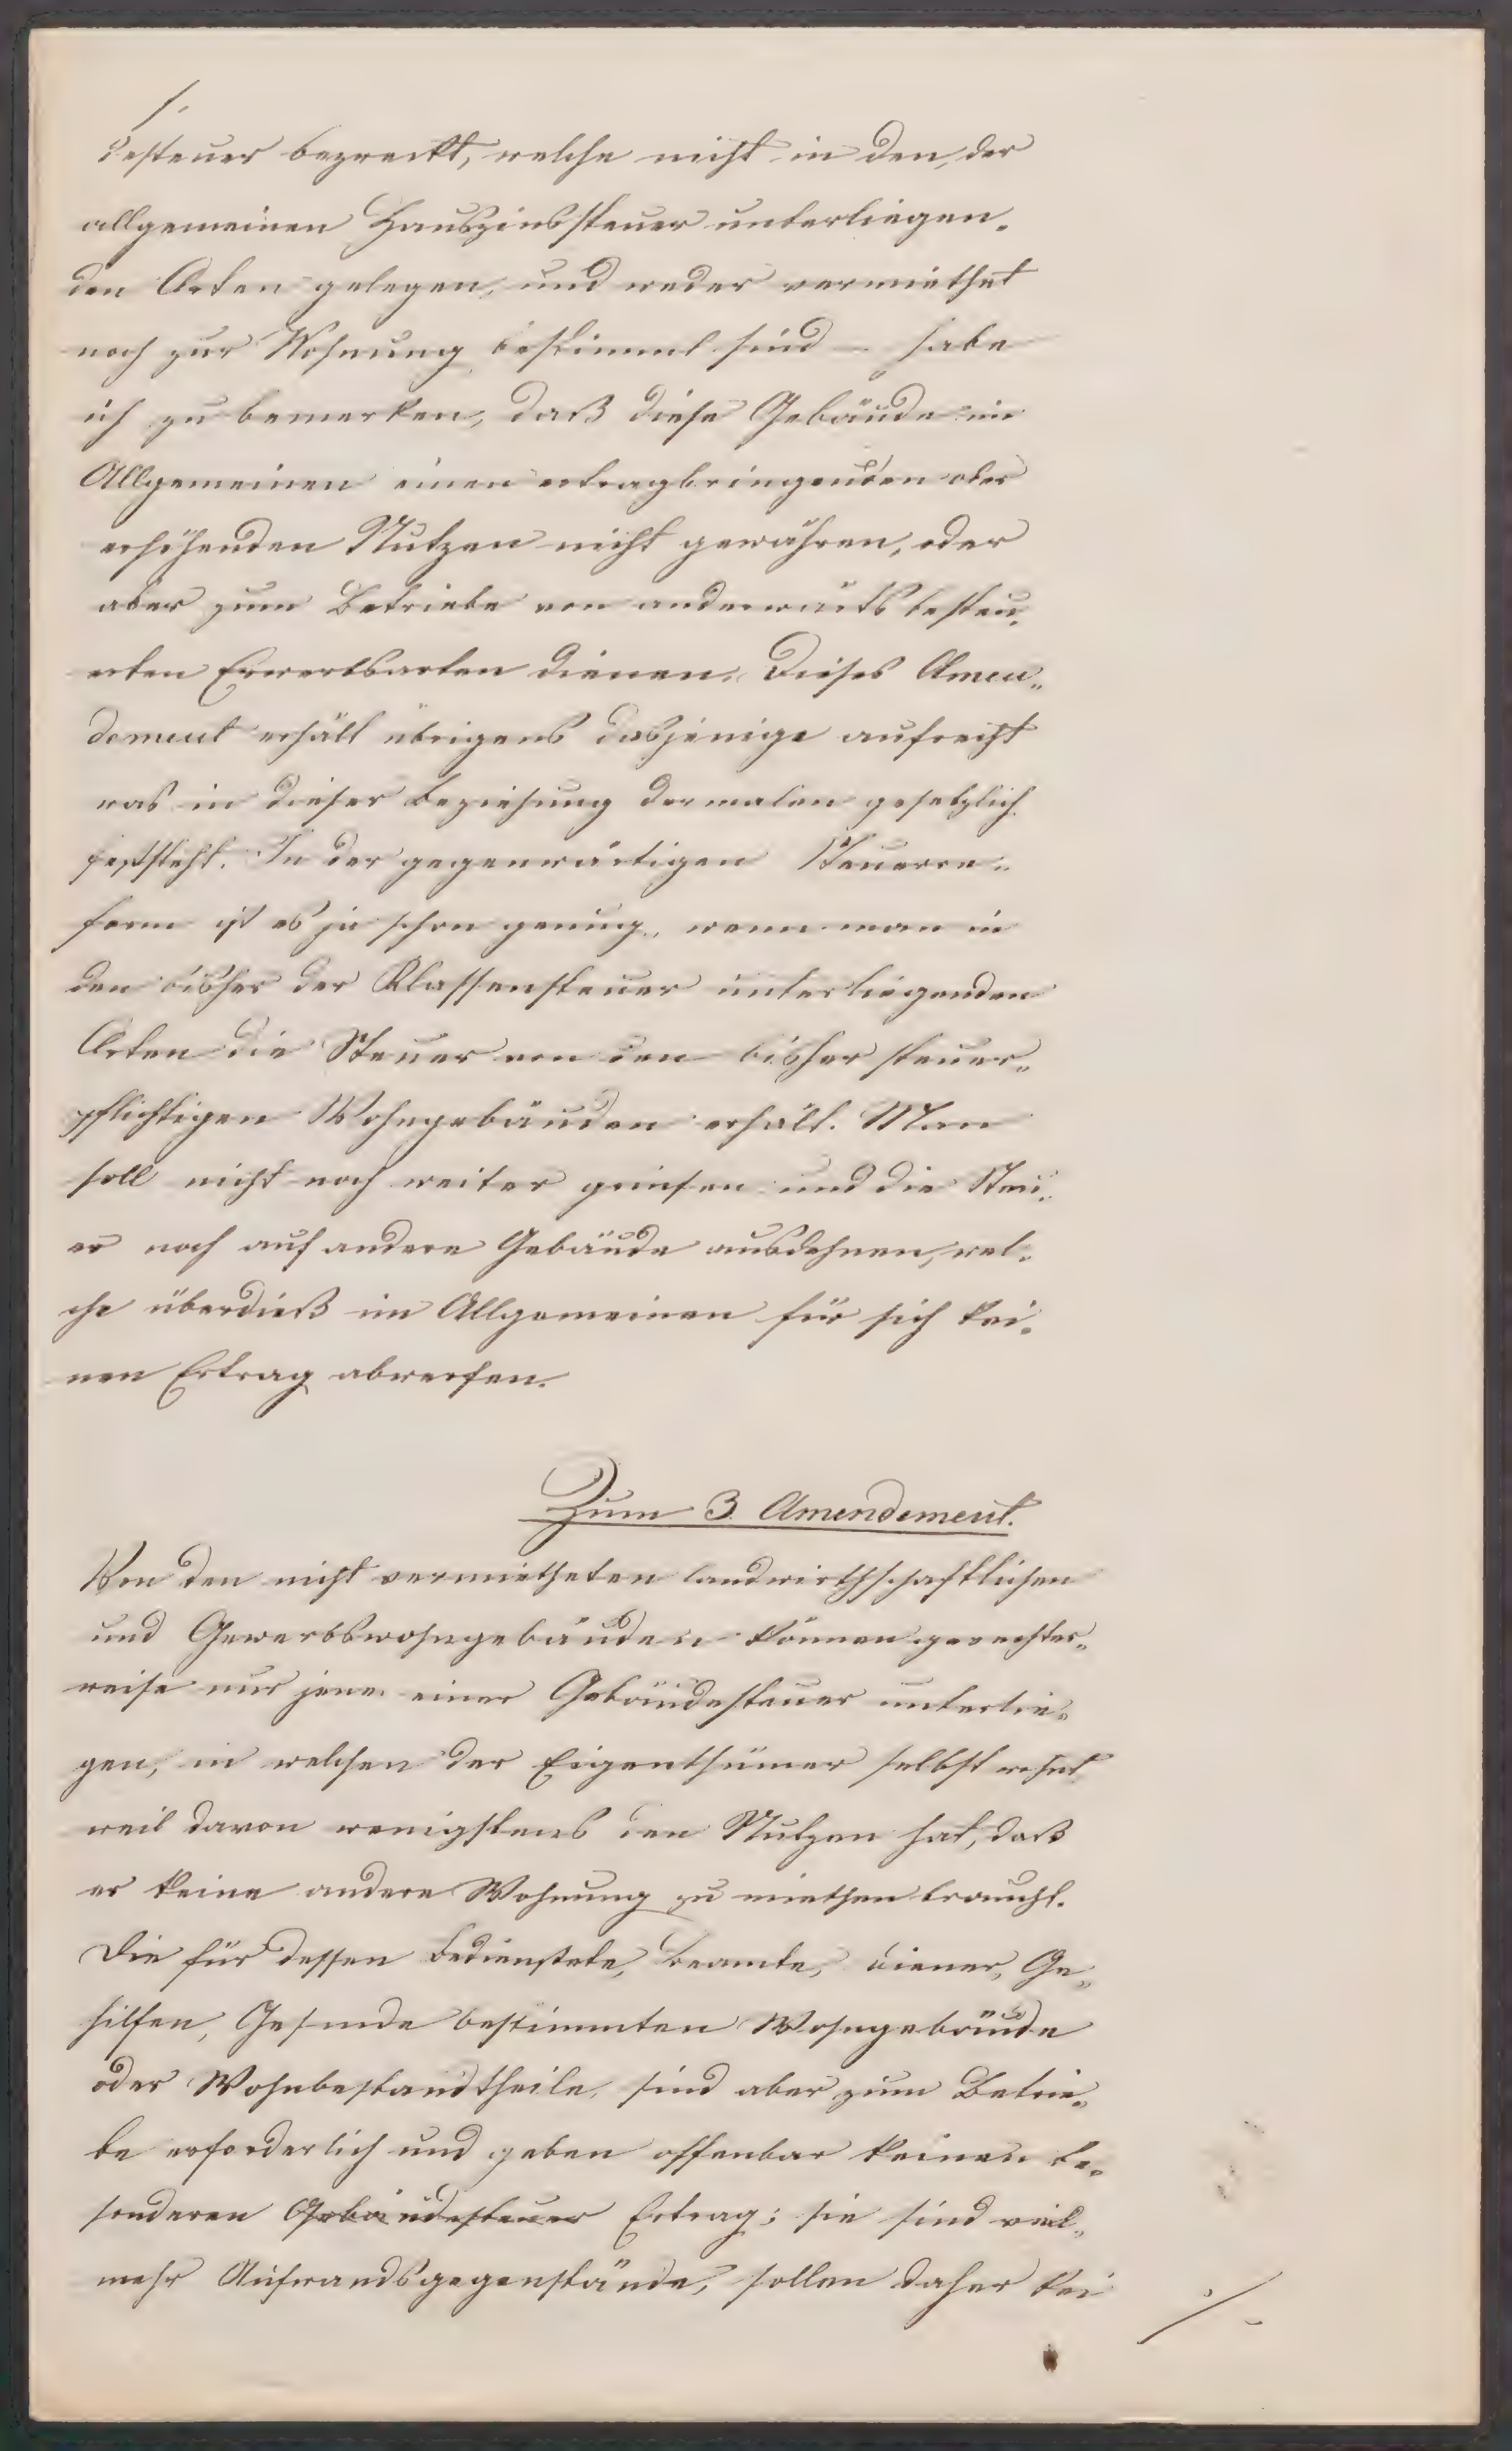 /.
desteuer bezweckt, welche nicht in den, der
allgemeinen Hauszinssteuer unterliegen„
den Orten gelegen, und weder vermiethet
noch zur Wohnung bestimmt sind – habe
ich zu bemerken, daß diese Gebäude im
Allgemeinen einen ertragbringenden oder
erhöhenden Nutzen nicht gewähren, oder
aber zum Betriebe von anderwärts besteu„
erten Erwerbsarten dienen. Dieses Amen„
dement erhält übrigens dasjenige aufrecht
was in dieser Beziehung dermalen gesetzlich
feststeht. In der gegenwärtigen Steuerre„
form ist es ja schon genug, wenn man in
den bisher der Klassensteuer unterliegenden
Orten die Steuer von den bisher steuer„
pflichtigen Wohngebäuden erhält. Man
soll nicht noch weiter greifen und die Steu„
er noch auf andere Gebäude ausdehnen, wel„
che überdieß im Allgemeinen für sich kei„
nen Ertrag abwerfen.
Zum 3. Amendement.
Von den nicht vermietheten landwirthschaftlichen
und Gewerbswohngebäuden können gerechter„
weise nur jene einer Gebäudesteuer unterlie„
gen, in welchen der Eigenthümer selbst wohnt
weil davon wenigstens den Nutzen hat, daß
er keine andere Wohnung zu miethen braucht.
Die für dessen Bedienstete, Beamte, Diener, Ge„
hilfen, Gesinde bestimmten Wohngebäude
oder Wohnbestandtheile, sind aber zum Betrie„
be erforderlich und geben offenbar keinen be„
sonderen Gebäudesteuer Ertrag; sie sind viel„
mehr Aufwandsgegenstände, sollen daher kei
./.